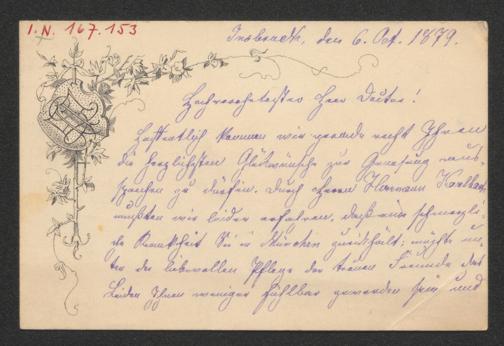 I.N. 167.153
Innsbruck, den 6. Oct. 1879.
Hochverehrtester Herr Doctor!
Hoffentlich kommen wir gerade recht Ihnen
die herzlichsten Glükwünsche zur Genesung aus-
sprechen zu dürfen. Durch Herrn Hermann
mußten wir leider erfahren, daß eine schmerzli-
che Krankheit Sie in München zurükhält; möchte un-
ter der liebevollen Pflege der treuen Freunde das
Leiden Ihnen weniger fühlbar geworden sein und